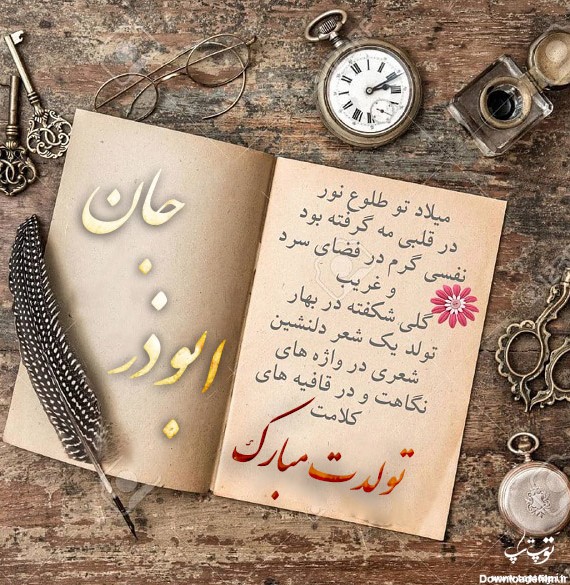 جان
ابوذر
میلاد تو طلوع نور
در قلبی مه گرفته بود
نفسی گرم در فضای سرد
و غریب
گلی شکفته در بهار
تولد یک شعر دلنشین
شعری در واژه های
نگاهت و در قافیه های
کلامت
تولدت مبارک
توپ تاپ